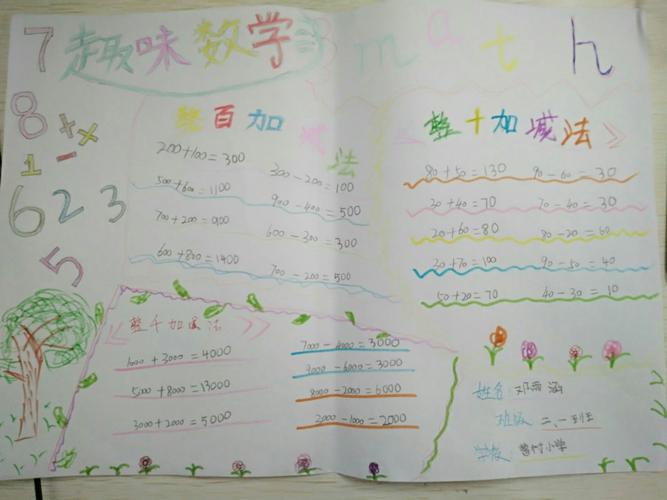 7 趣味数学 math
8 + ×
1 -
6 2 3
5
整百加减法
200+100=300 300-200=100
500+600=1100 900-400=500
700+200=900 600-300=300
600+800=1400 700-200=500
《整十加减法》
80+50=130 90-60=30
30+40=70 70-40=30
20+60=80 80-20=60
+70=100 90-50=40
50+20=70 40-30=10
《整千加减法》
1000+3000=4000 7000-4000=3000
5000+8000=13000 9000-6000=3000
3000+2000=5000 8000-2000=6000
-1000=2000
姓名:邓雨涵
班级 二、一
学校:村小学